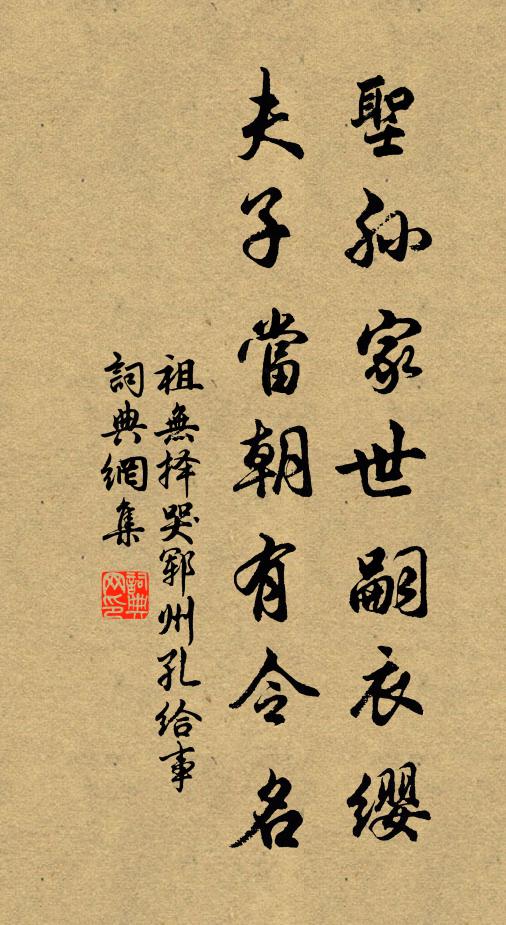 聖孫家世嗣衣缨
夫子當朝有令名
祖無择哭郓州孔給事
詞典網集
詞典网印